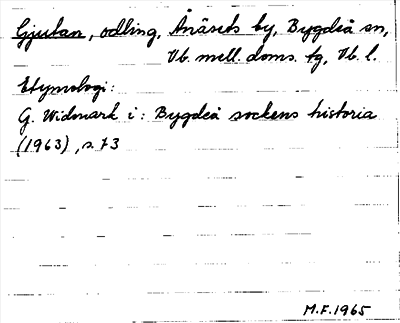 Gjutan, odling, Ånäsets by, Bygdeå sn,
Vb. mell. doms. tg, Vb. l.
Etymologi:
G. Widmark i: Bygdeå sockens historia
(1963), s. 73
M.F. 1965